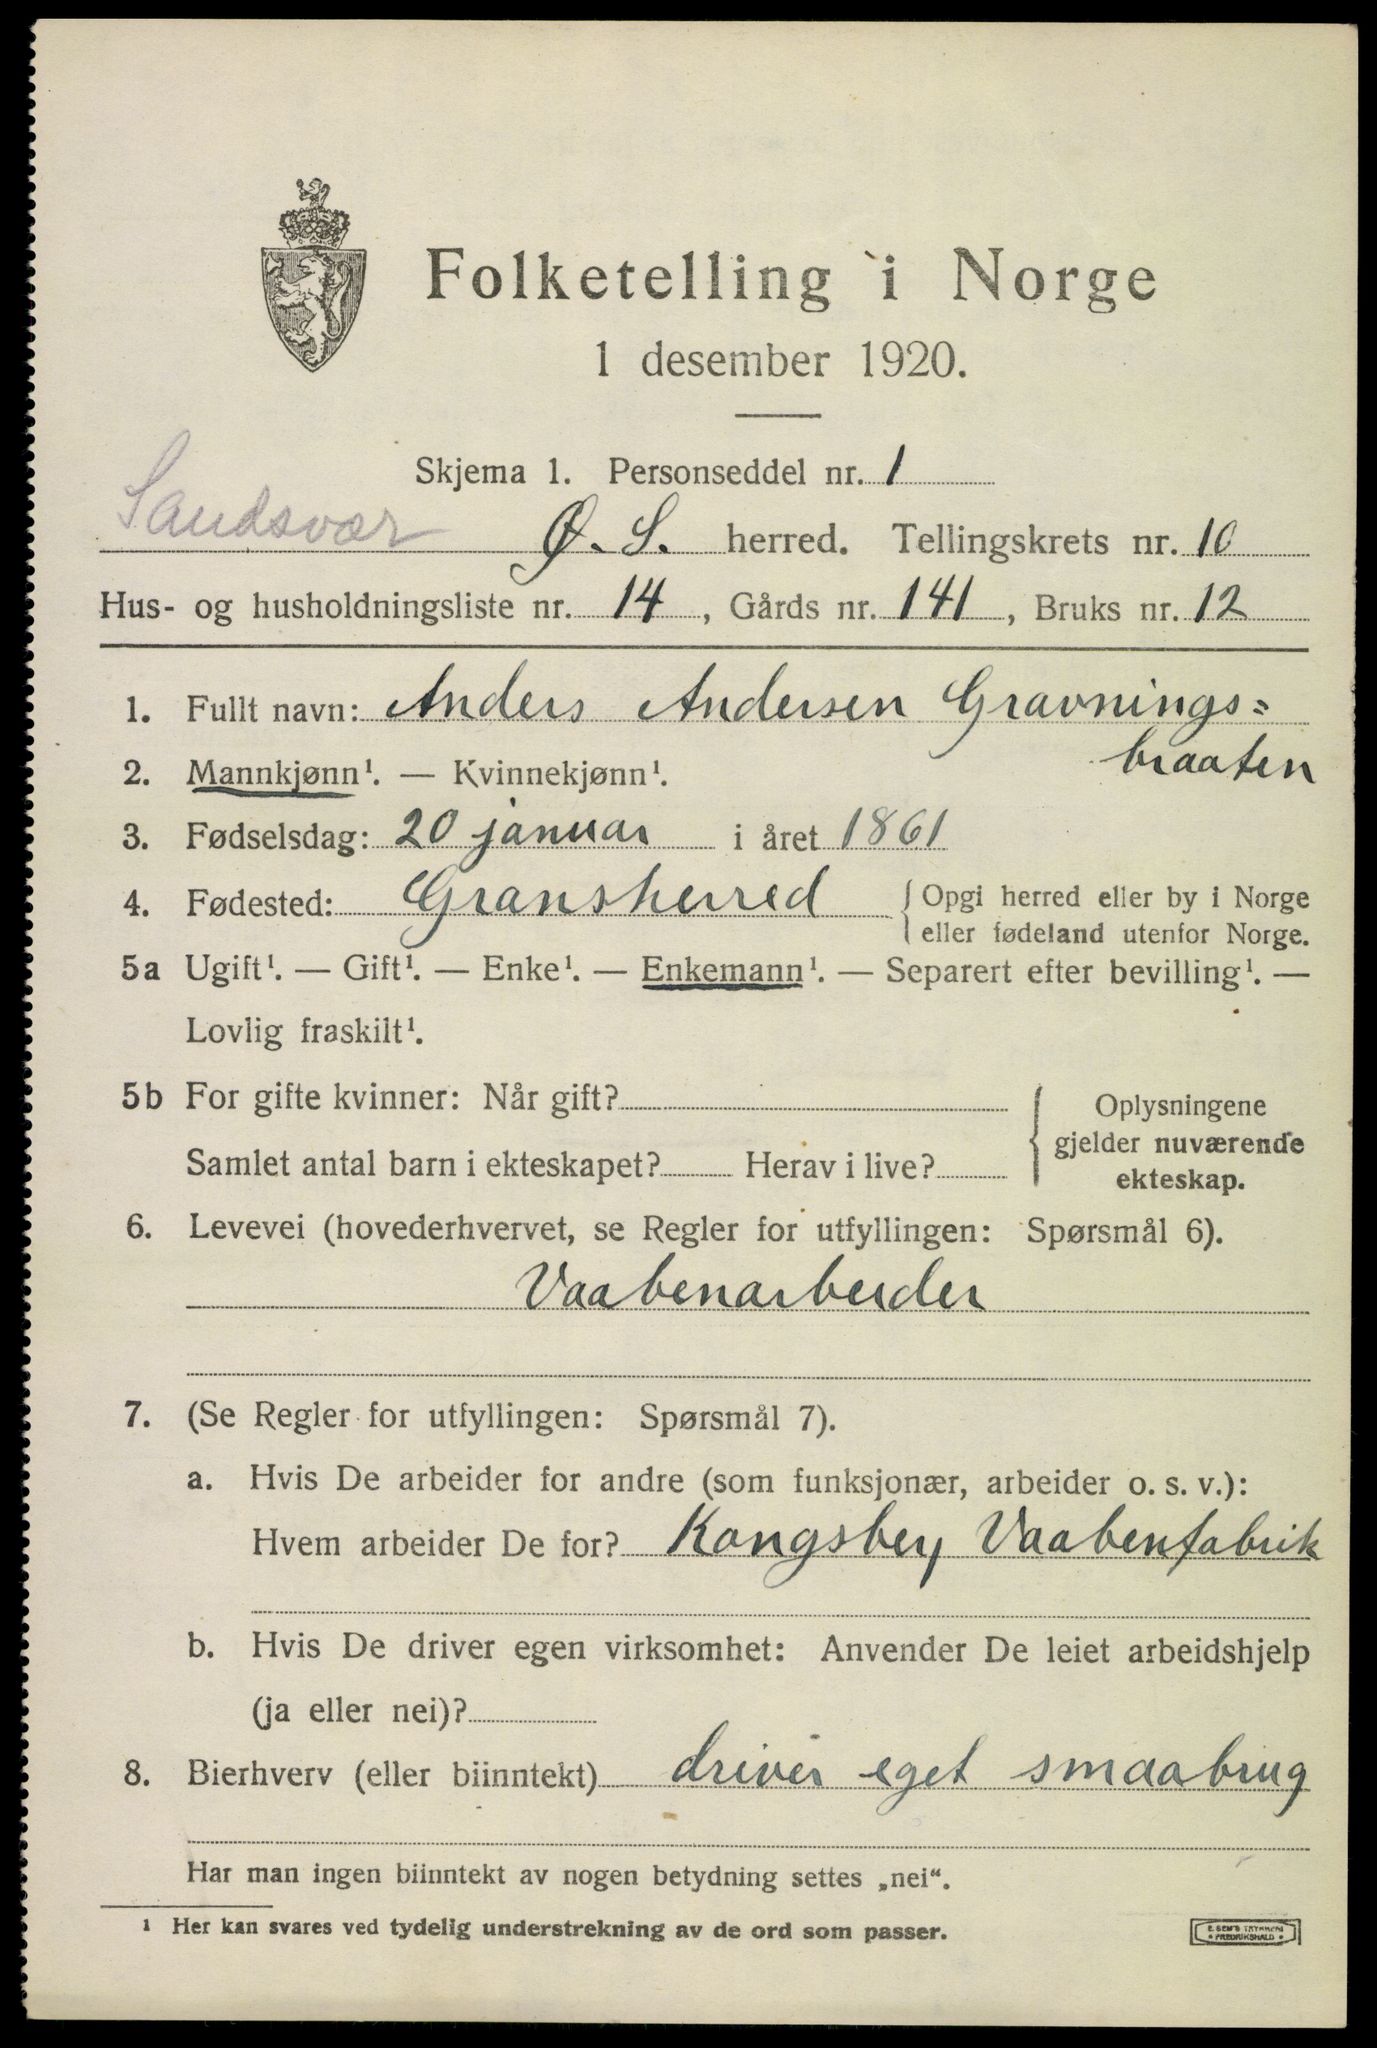 Folketelling i Norge
1 desember 1920.
Skjema 1. Personseddel nr. 1
Sandsvær Ø. S. herred. Tellingskrets nr. 10
Hus- og husholdningsliste nr. 14, Gårds nr. 141, Bruks nr. 12
1. Fullt navn: Anders Andersen Gravnings=
braaten
2. Mannkjønn¹. — Kvinnekjønn¹.
3. Fødselsdag: 20 januar i året 1861
4. Fødested: Gransherred { Opgi herred eller by i Norge
eller fødeland utenfor Norge.
5a Ugift¹. — Gift¹. — Enke¹. — Enkemann¹. — Separert efter bevilling¹. —
Lovlig fraskilt¹.
5b For gifte kvinner: Når gift?
Samlet antal barn i ekteskapet? Herav i live?
Oplysningene
gjelder nuværende
ekteskap.
6. Levevei (hovederhvervet, se Regler for utfyllingen: Spørsmål 6).
Vaabenarbeider
7. (Se Regler for utfyllingen: Spørsmål 7).
a. Hvis De arbeider for andre (som funksjonær, arbeider o. s. v.):
Hvem arbeider De for? Kongsberg Vaabenfabrik
b. Hvis De driver egen virksomhet: Anvender De leiet arbeidshjelp
(ja eller nei)?
8. Bierhverv (eller biinntekt) driver eget smaabrug
Har man ingen biinntekt av nogen betydning settes „nei“.
¹ Her kan svares ved tydelig understrekning av de ord som passer.
E. SEM'S TRYKKERI
• FREDRIKSHALD •